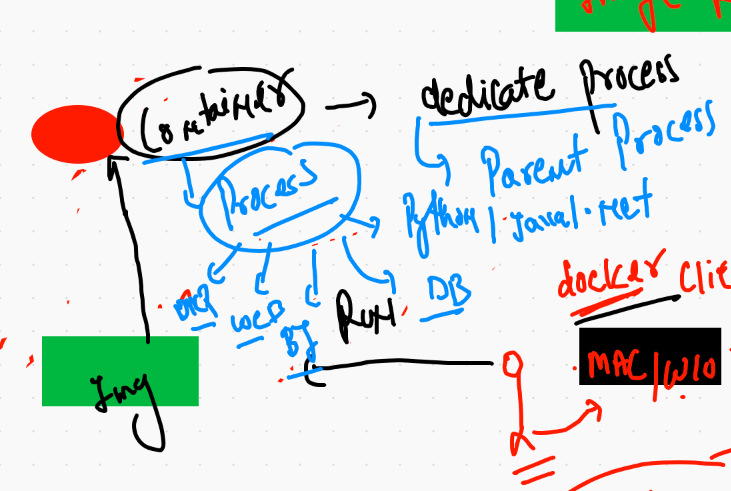 Container → dedicate process
Parent Process
Process
Python / Java / .net
web
DB
Run
docker Clie
MAC/W/O
Img